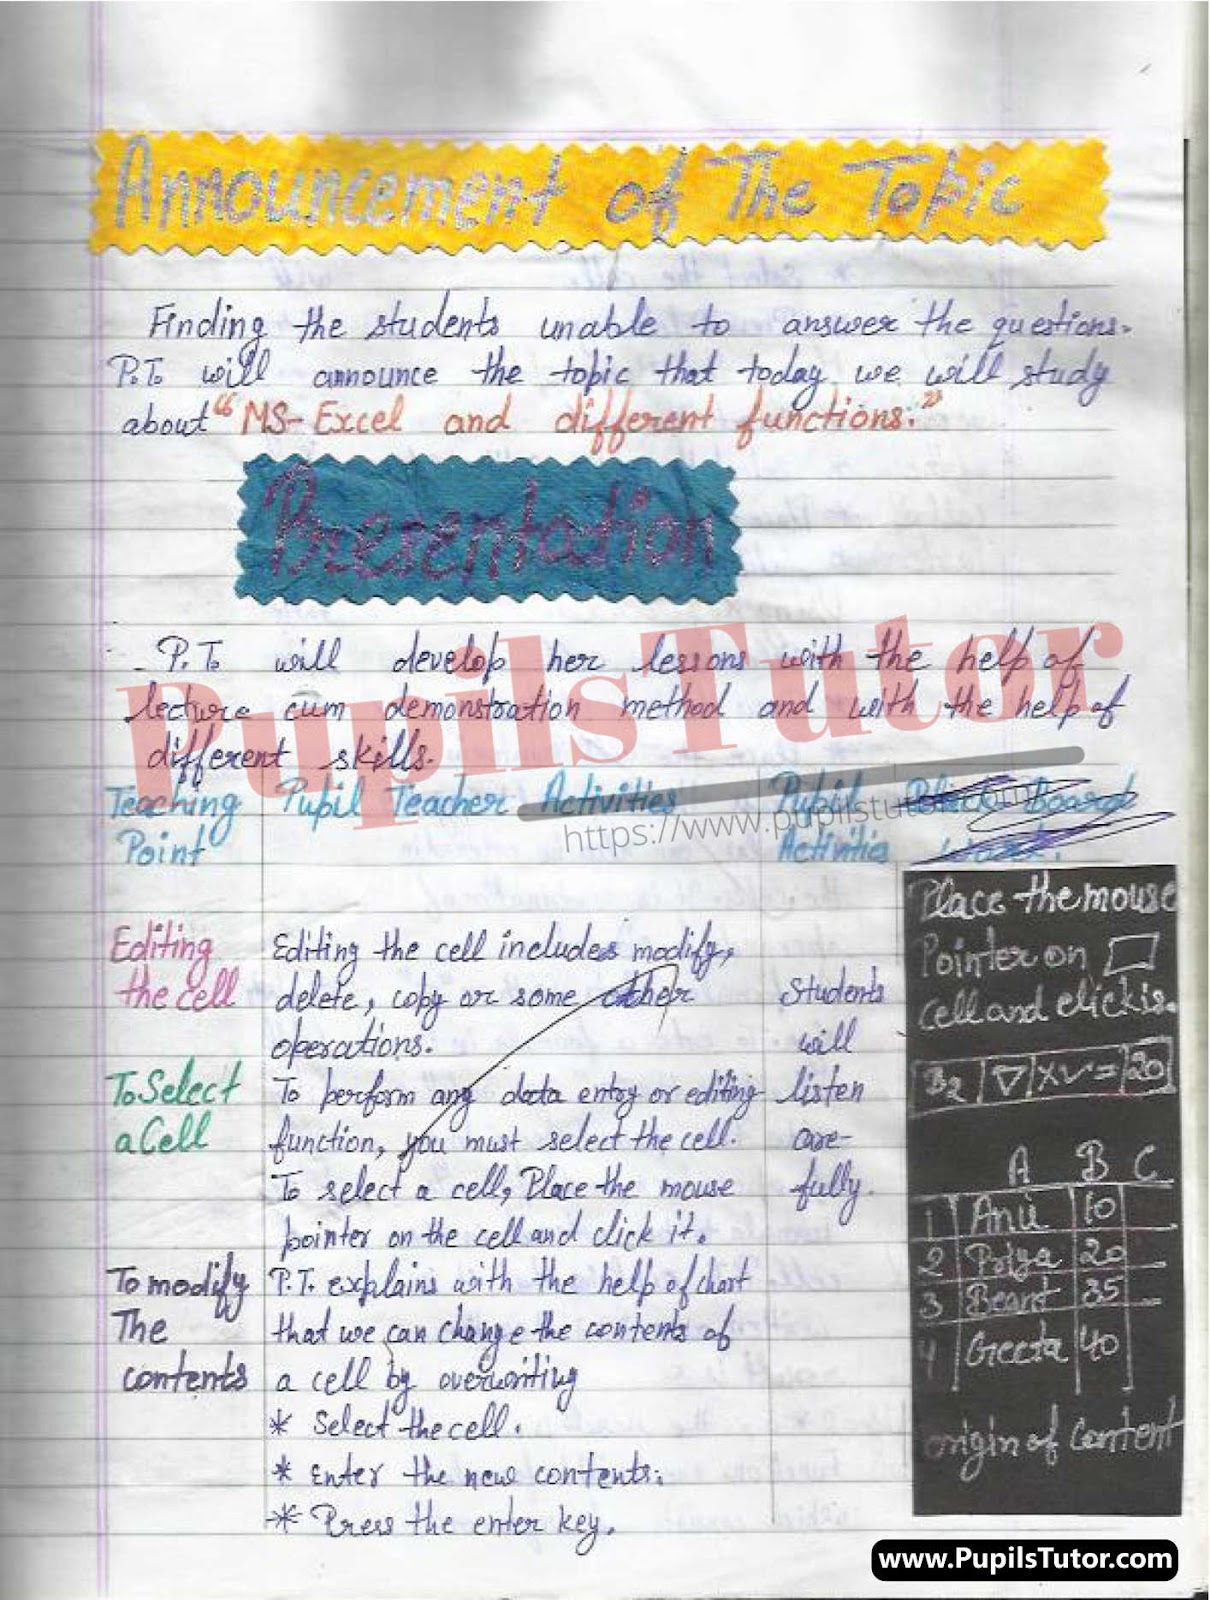 Announcement of The Topic
Finding the students unable to answer the questions.
P.T. will announce the topic that today we will study
about "MS-Excel and different functions."
Presentation
P.T. will develop her lessons with the help of
lecture cum demonstration method and with the help of
different skills.
PupilsTutor
https://www.pupilstutor.com
Teaching Point
Pupil Teacher Activities
Pupil Activities
Black Board
Editing
the cell
Editing the cell includes modify,
delete, copy or some other
operations.
To Select
a Cell
To perform any data entry or editing
function, you must select the cell.
To select a cell, Place the mouse
pointer on the cell and click it.
To modify
The
contents
P.T. explains with the help of chart
that we can change the contents of
a cell by overwriting
* Select the cell.
* Enter the new contents.
* Press the enter key.
Students
will
listen
care-
fully.
Place the mouse
Pointer on
cell and click is.
B2 ▽ X ✓ = 20
A B C
1 Anu 10
2 Priya 20
3 Beant 35
4 Geeta 40
origin of Content
www.PupilsTutor.com